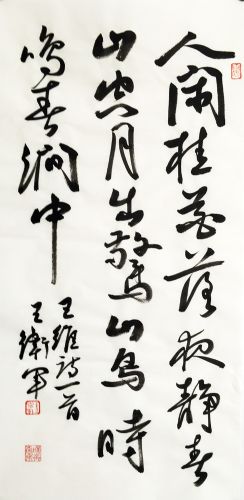 人閑桂花落夜静春
山空月出驚山鳥時
鳴春澗中
王維詩一首
王衛軍